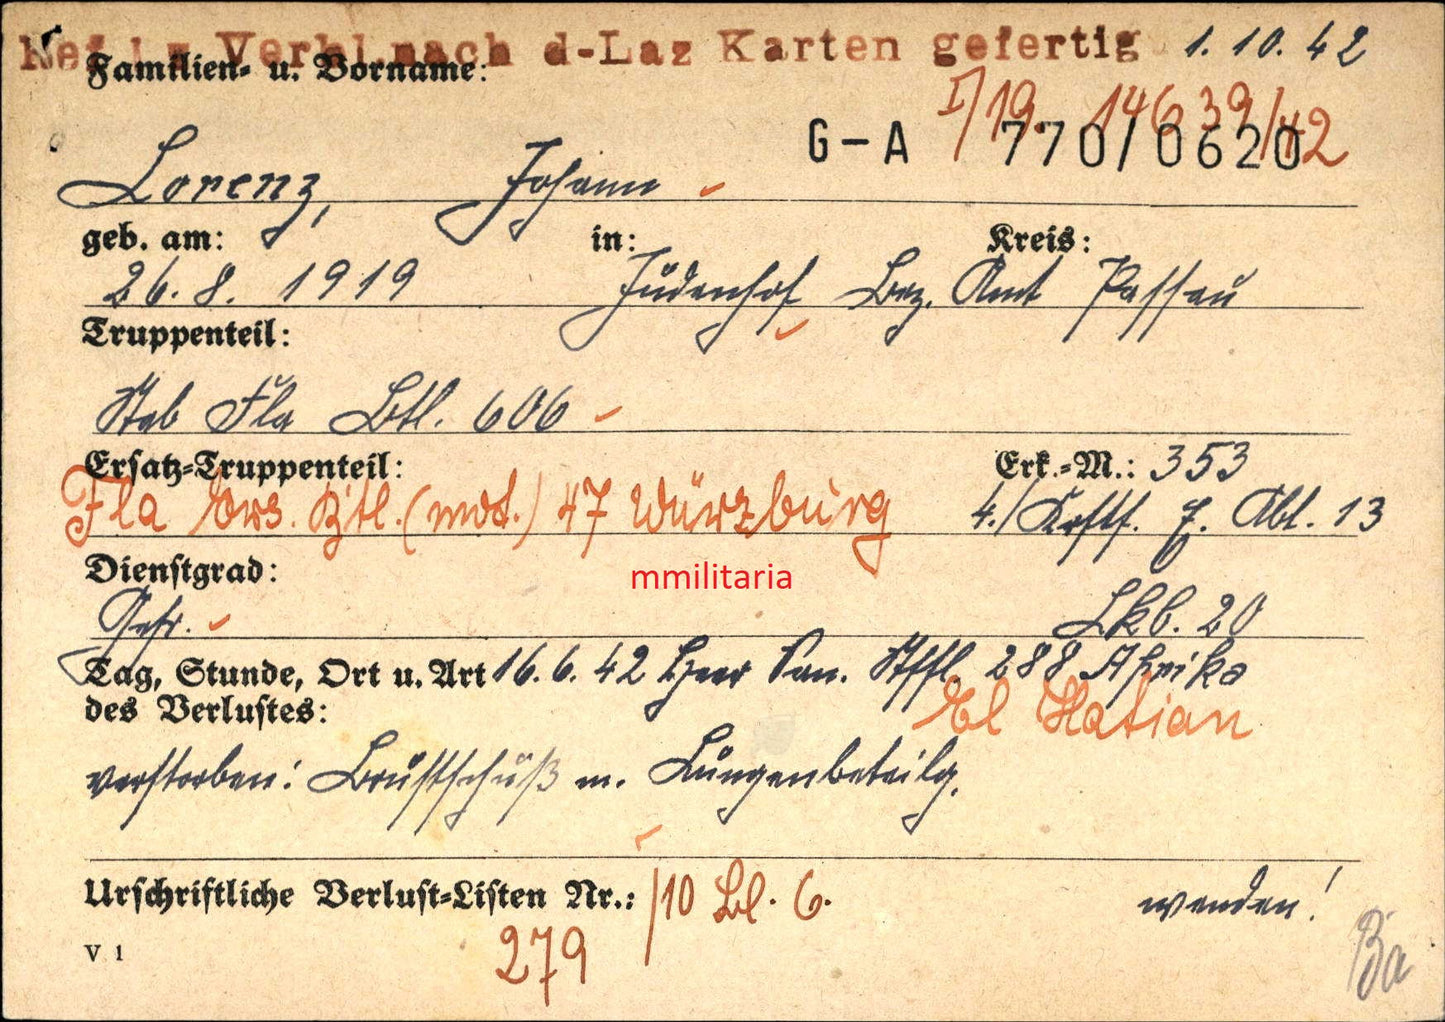 Verbl nach d-Laz Karten gefertig 1. 10. 42
Familien- u. Vorname:
I/19. 14639/42
G-A 770/0620
Lorenz, Johann
geb. am: in: Kreis:
26. 8. 1919 Judenhof Bez. Amt Passau
Truppenteil:
Stab Fla Btl. 606
Ersatz-Truppenteil: Erk.-M.: 353
Fla Ers. Btl. (mot.) 47 Würzburg 4./Krftf. E. Abt. 13
Dienstgrad:
mmilitaria
Gefr. Lkb. 20
Tag, Stunde, Ort u. Art 16. 6. 42 Heer San. Stffl. 288 Afrika
des Verlustes: El Hatian
verstorben: Brustschuß m. Lungenbeteilg.
Urschriftliche Verlust-Listen Nr.: /10 Bl. 6. wenden!
279
V 1
Ba